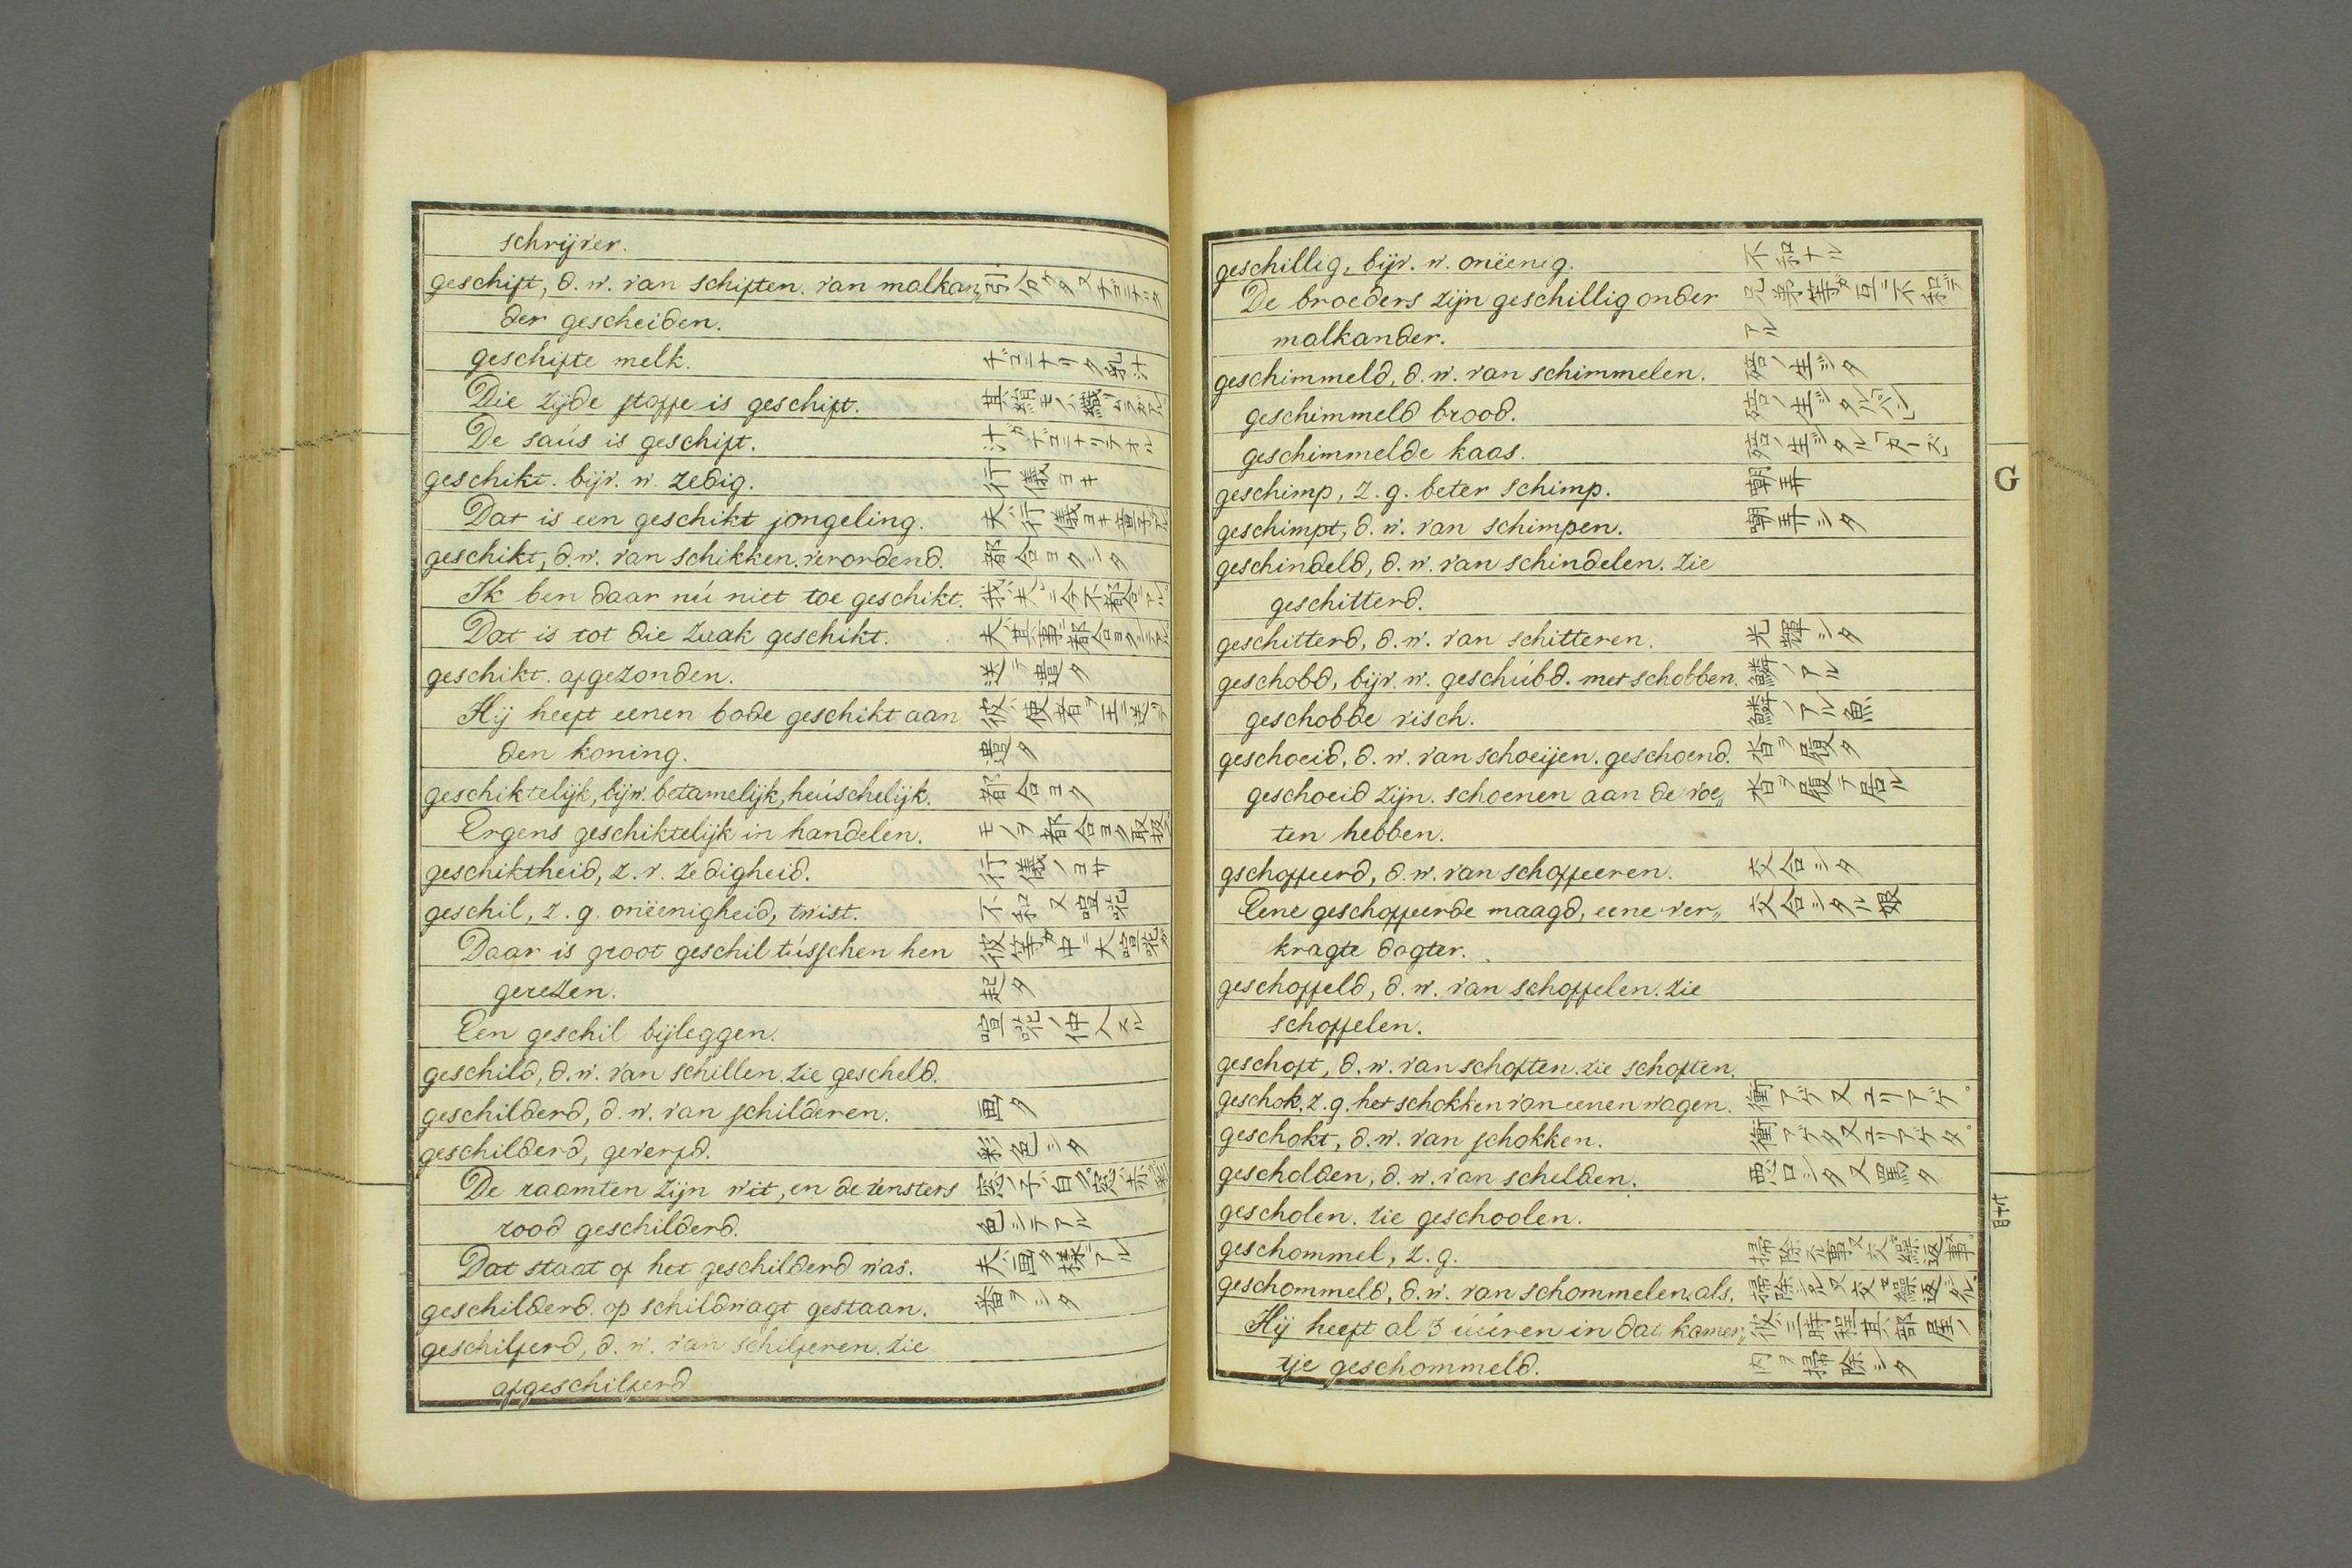 schrijver.
geschift, d. w. van schiften. van malkan„ 引分タ又チヂニナリタ
der gescheiden.
geschifte melk. チヂニナリタ乳汁
Die zijde stoffe is geschift.
De saús is geschift. 汁ガチヂニナリテオル
geschikt. bijv. w. zedig. 行儀ヨキ
Dat is een geschikt jongeling. 夫ハ行儀ヨキ童子デアル
geschikt, d. w. van schikken. verordend. 都合ヨクシタ
Ik ben daar nú niet toe geschikt. 我ハ夫レニ今不都合デアル
Dat is tot die zaak geschikt. 夫ハ其事ニ都合ヨクシテアル
geschikt. afgezonden. 送テ遣タ
Hij heeft eenen bode geschikt aan 彼ハ使者ヲ王ニ送リテ
den koning. 遣タ
geschiktelijk, bijw. betamelijk, heúschelijk. 都合ヨク
Ergens geschiktelijk in handelen. モノヲ都合ヨク取扱フ
geschiktheid, z. v. zedigheid. 行儀ノヨサ
geschil, z. g. onëenigheid, twist. 不和又喧嘩
Daar is groot geschil tússchen hen 彼等ガ中ニ大喧嘩ガ
gerezen. 起タ
Een geschil bijleggen. 喧嘩ノ仲人スル
geschild, d. w. van schillen. zie gescheld.
geschilderd, d. w. van schilderen. 画タ
geschilderd, geverfd. 彩色シタ
De raamten zijn wit, en de vensters
rood geschilderd. 色シテアル
Dat staat of het geschilderd was. 夫ハ画タ様デアル
geschilderd. op schildwagt gestaan. 番ヲシタ
geschilferd, d. w. van schilferen. zie
afgeschilferd
geschillig, bijv. w. onëenig. 不和ナル
De broeders zijn geschillig onder 兄弟等ガ互ニ不和デ
malkander. アル
geschimmeld, d. w. van schimmelen. ノ生ジタ
geschimmeld brood. ノ生ジタル「パン」
geschimmelde kaas. ノ生ジタル「カーズ」
geschimp, z. g. beter schimp. 嘲弄
geschimpt, d. w. van schimpen. 嘲弄シタ
geschindeld, d. w. van schindelen. zie
geschitterd.
geschitterd, d. w. van schitteren. 光輝シタ
geschobd, bijv. w. geschúbd. met schobben. 鱗ノアル
geschobde visch. 鱗ノアル魚
geschoeid, d. w. van schoeijen. geschoend. 沓ヲ履タ
geschoeid zijn. schoenen aan de voe„ 沓ヲ履テ居ル
ten hebben.
gschoffeerd, d. w. van schoffeeren. 交合シタ
Eene geschoffeerde maagd, eene ver„ 交合シタル娘
kragte dogter.
geschoffeld, d. w. van schoffelen. zie
schoffelen.
geschoft, d. w. van schoften. zie schoften.
geschok. z. g. het schokken van eenen wagen. 衝アゲ又ユリアゲ。
geschokt, d. w. van schokken. 衝アゲタ又ユリアゲタ。
gescholden, d. w. van schelden. 悪口シタ又罵タ
gescholen. zie geschoolen.
geschommel, z. g. 掃除スル事又交ゼ繰返ス事。
geschommeld, d. w. van schommelen. als.
Hij heeft al 3 úúren in dat kamer„ 彼ハ三時程其部屋ノ
tje geschommeld. 内ヲ掃除シタ
G